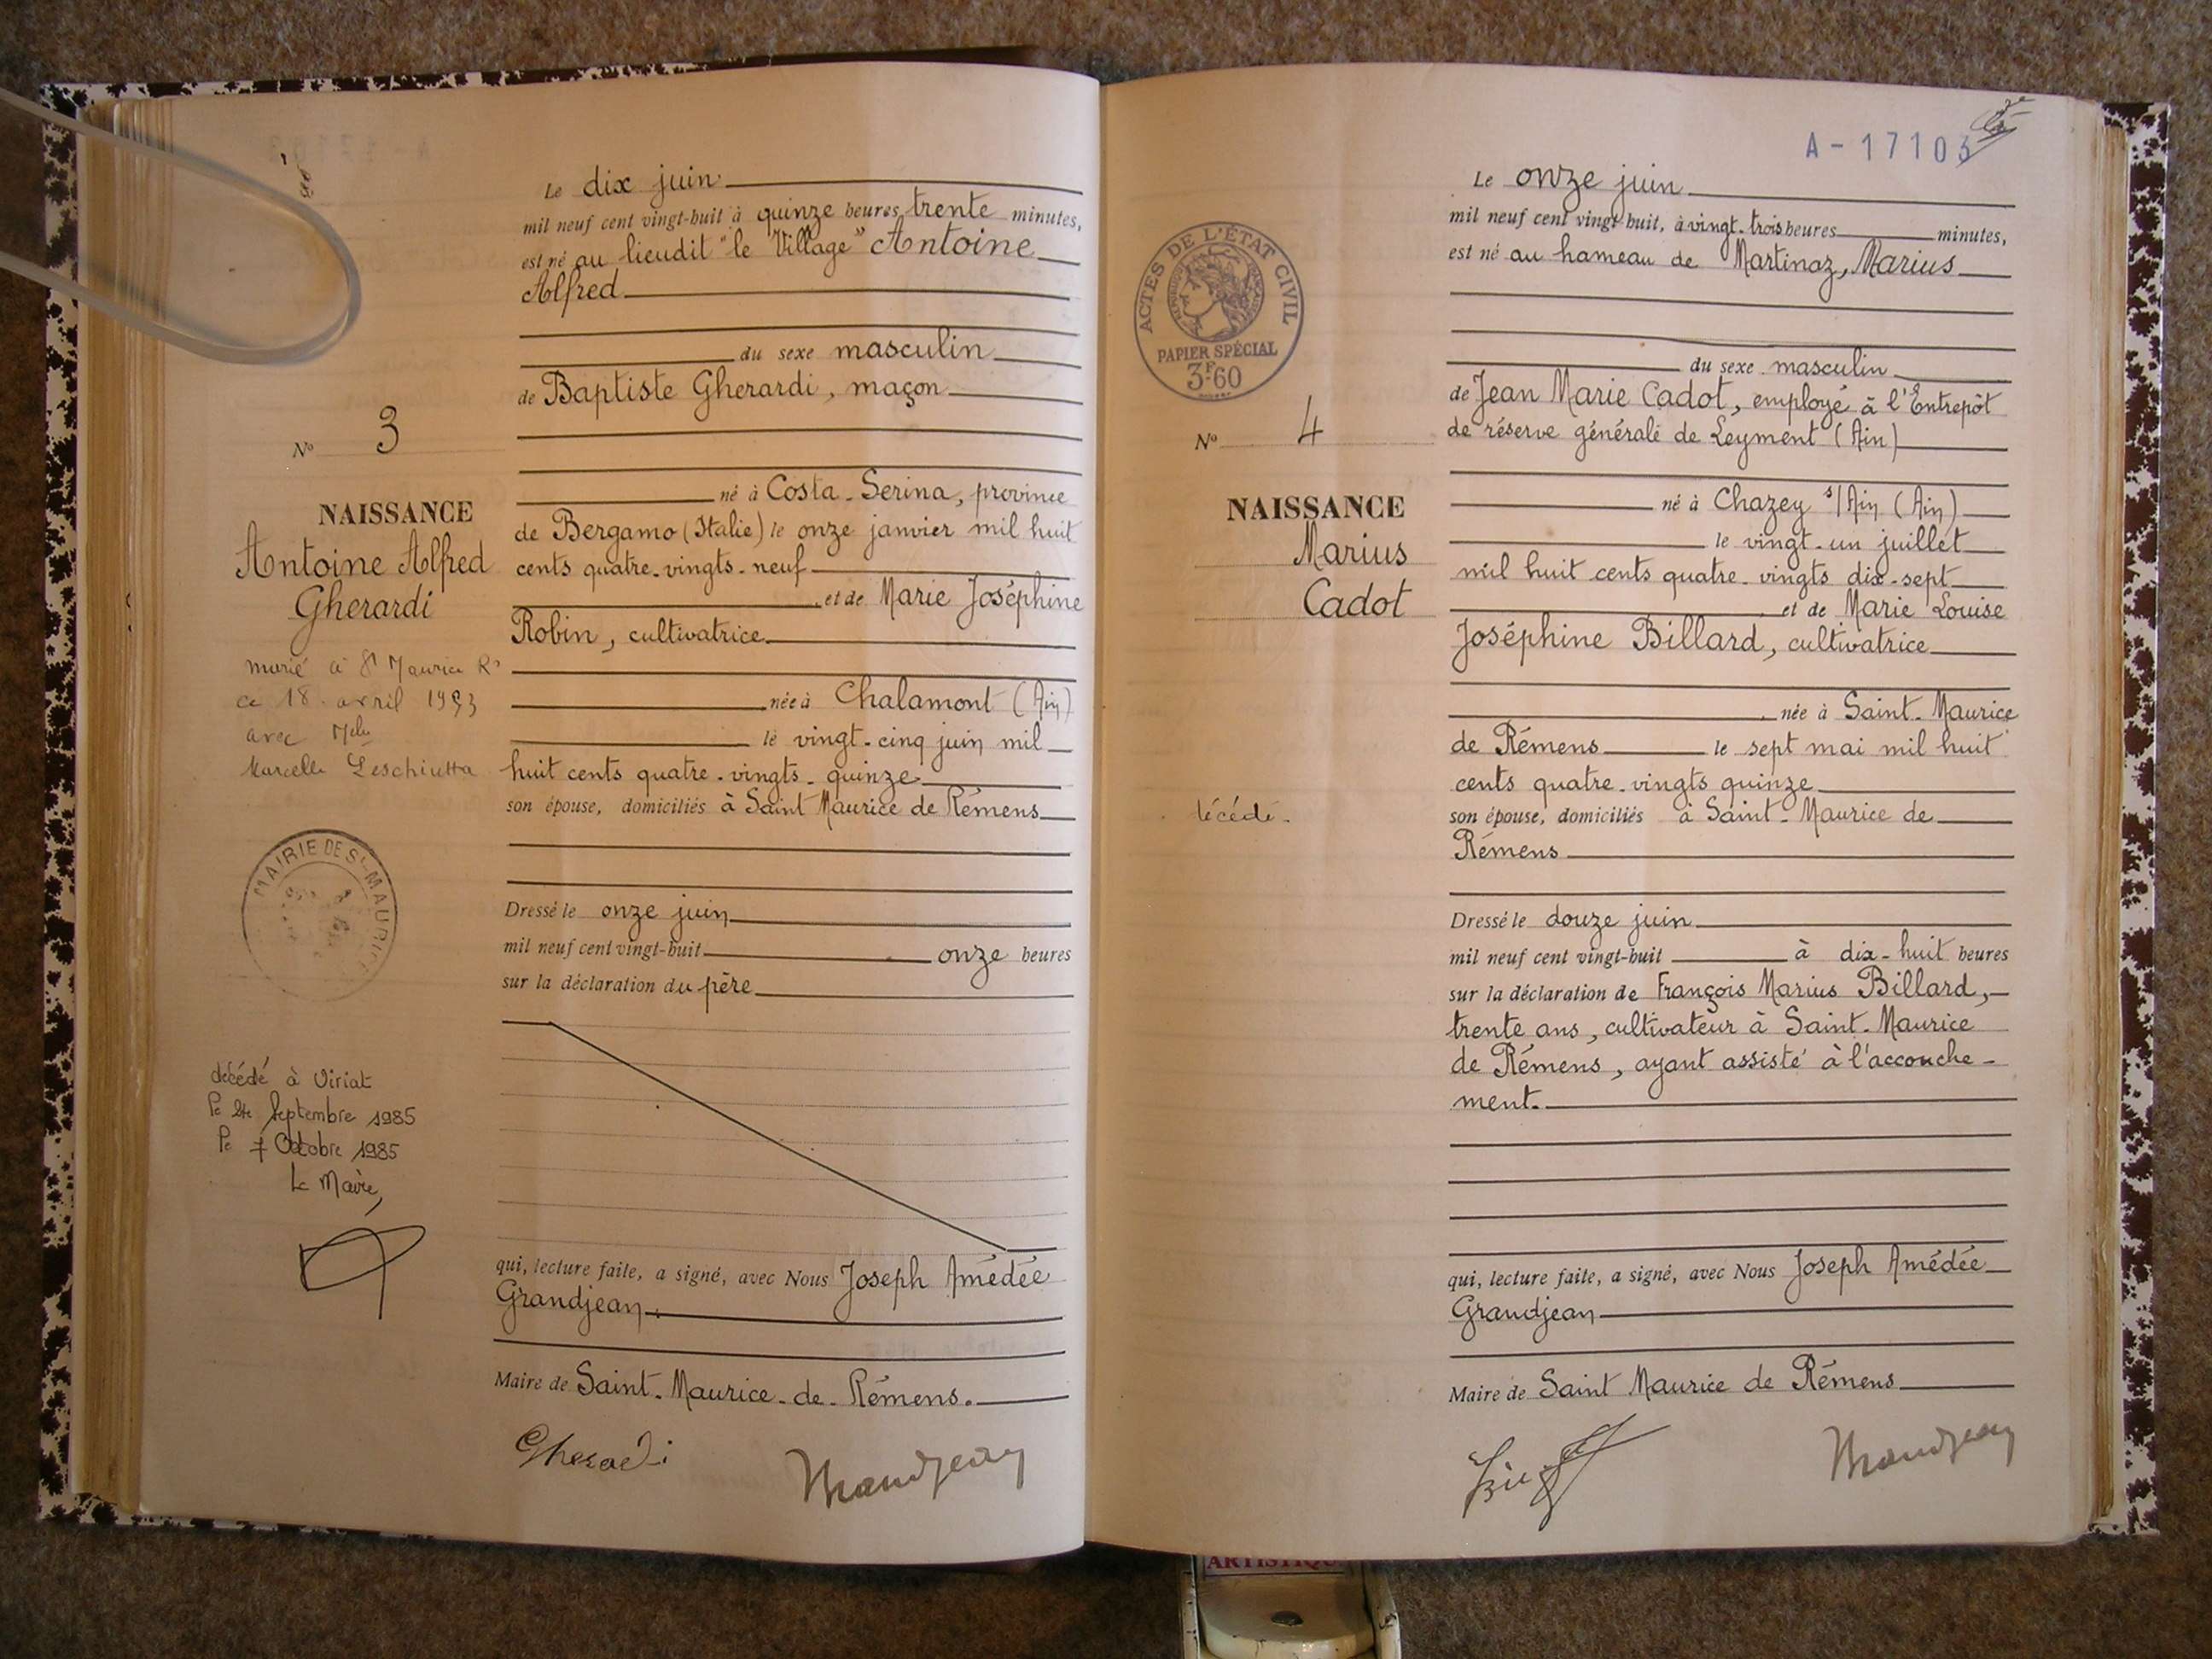 Le dix juin
mil neuf cent vingt-huit à quinze heures trente minutes,
est né au lieudit "le Village" Antoine
Alfred
du sexe masculin
de Baptiste Gherardi, maçon
N° 3
né à Costa-Serina, province
NAISSANCE
de Bergamo (Italie) le onze janvier mil huit
Antoine Alfred
cents quatre-vingts-neuf
Gherardi
et de Marie Joséphine
Robin, cultivatrice
marié à St Maurice Rs
ce 18 avril 1953
avec Melle
Marcelle Leschiutta
née à Chalamont (Ain)
le vingt-cinq juin mil
huit cents quatre-vingts-quinze
son épouse, domiciliés à Saint Maurice de Rémens
MAIRIE DE ST MAURICE
Dressé le onze juin
mil neuf cent vingt-huit onze heures
sur la déclaration du père
décédé à Viriat
le 24 Septembre 1985
le 7 Octobre 1985
Le Maire,
qui, lecture faite, a signé, avec Nous Joseph Amédée
Grandjean
Maire de Saint-Maurice-de-Rémens.
Gherardi
Grandjean
A-17103
Le onze juin
mil neuf cent vingt-huit, à vingt-trois heures minutes,
est né au hameau de Martinaz, Marius
ACTES DE L'ÉTAT CIVIL
PAPIER SPÉCIAL
3F60
du sexe masculin
de Jean Marie Cadot, employé à l'Entrepôt
de réserve générale de Leyment (Ain)
N° 4
NAISSANCE
Marius
Cadot
né à Chazey s/Ain (Ain)
le vingt-un juillet
mil huit cents quatre-vingts dix-sept
et de Marie Louise
Joséphine Billard, cultivatrice
née à Saint-Maurice
de Rémens le sept mai mil huit
cents quatre-vingts quinze
décédé
son épouse, domiciliés à Saint-Maurice de
Rémens
Dressé le douze juin
mil neuf cent vingt-huit à dix-huit heures
sur la déclaration de François Marius Billard,
trente ans, cultivateur à Saint-Maurice
de Rémens, ayant assisté à l'accouche-
ment.
qui, lecture faite, a signé, avec Nous Joseph Amédée
Grandjean
Maire de Saint Maurice de Rémens
Grandjean
ARTISTIQUE